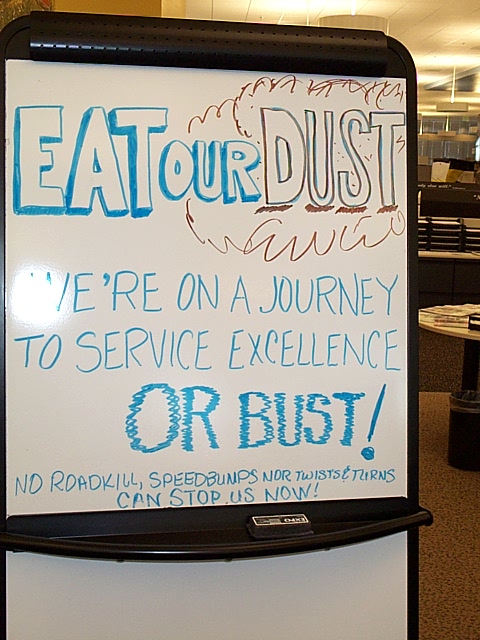 EAT OUR DUST
WE'RE ON A JOURNEY
TO SERVICE EXCELLENCE
OR BUST!
NO ROADKILL, SPEEDBUMPS NOR TWISTS & TURNS
CAN STOP US NOW!
EXPO